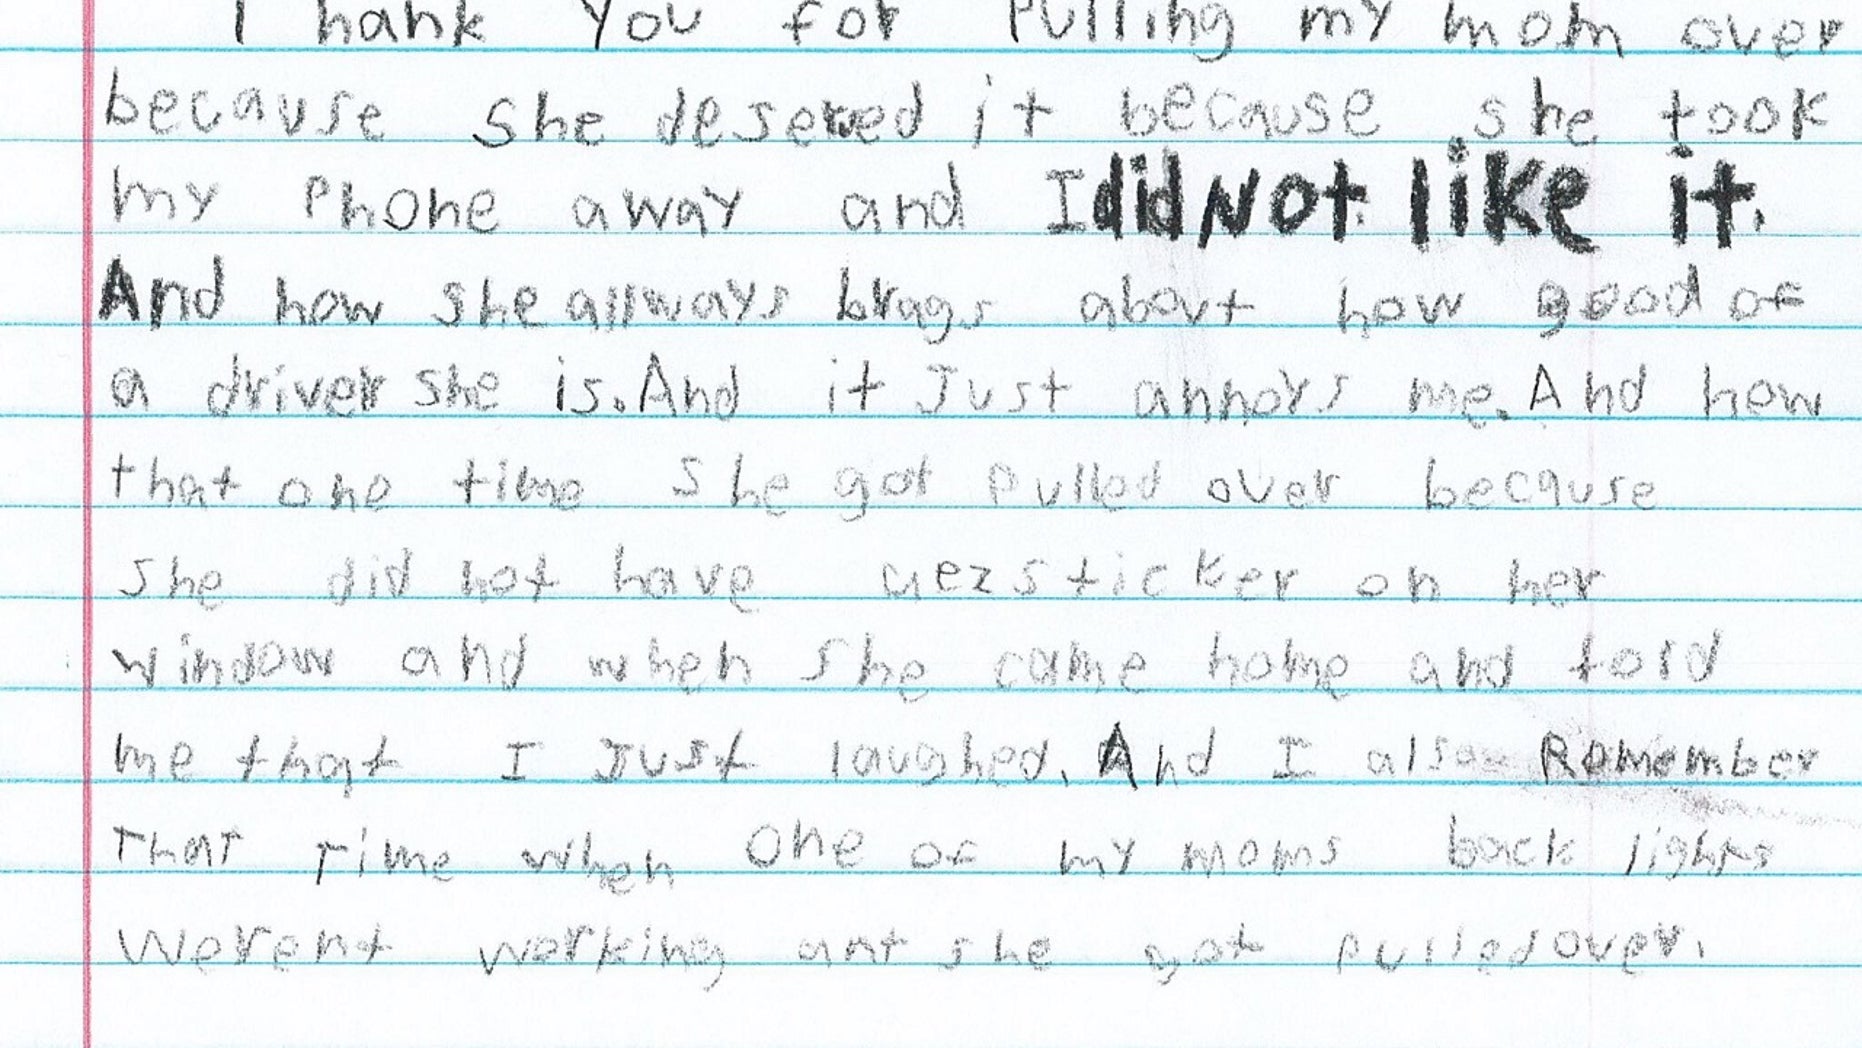 Thank You for Pulling my mom over
because she deserved it because she took
my Phone away and I did Not like it.
And how she allways brags about how good of
a driver she is. And it Just annoys me. And how
that one time she got Pulled over because
she did not have sticker on her
window and when she came home and told
me that I Just laughed. And I also Remember
That Time when one of my moms back lights
Werent working ant she got pulled over.